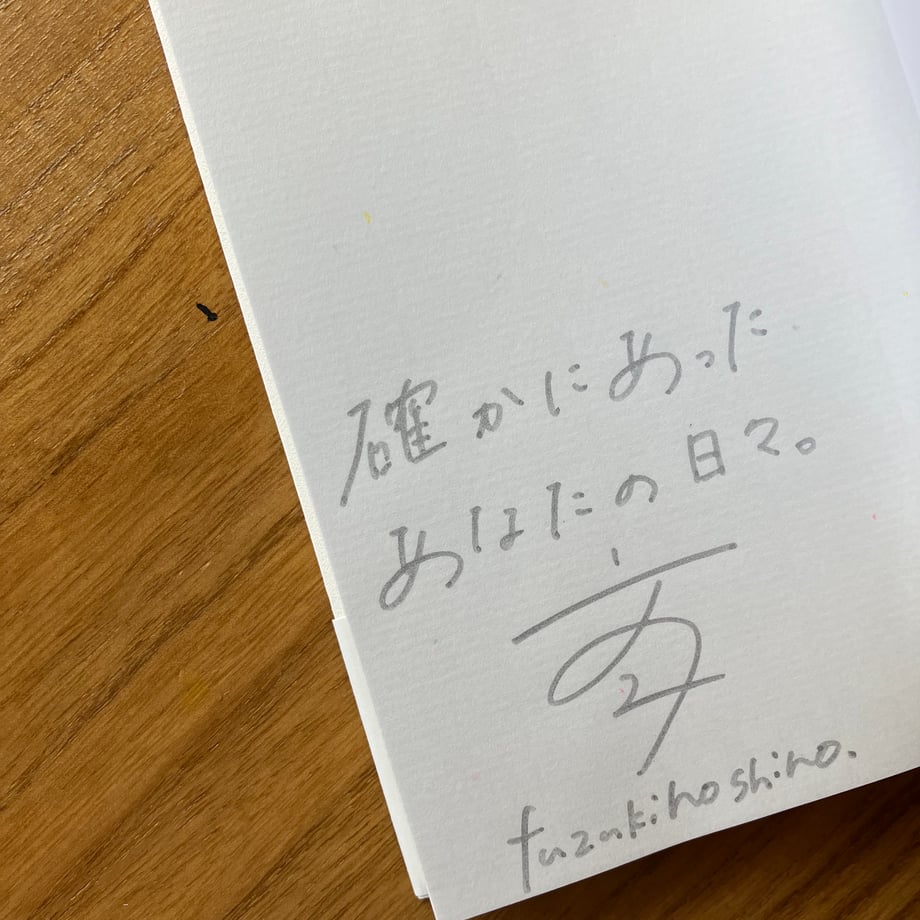 確かにあった
あなたの日々。
fuzukihoshino.